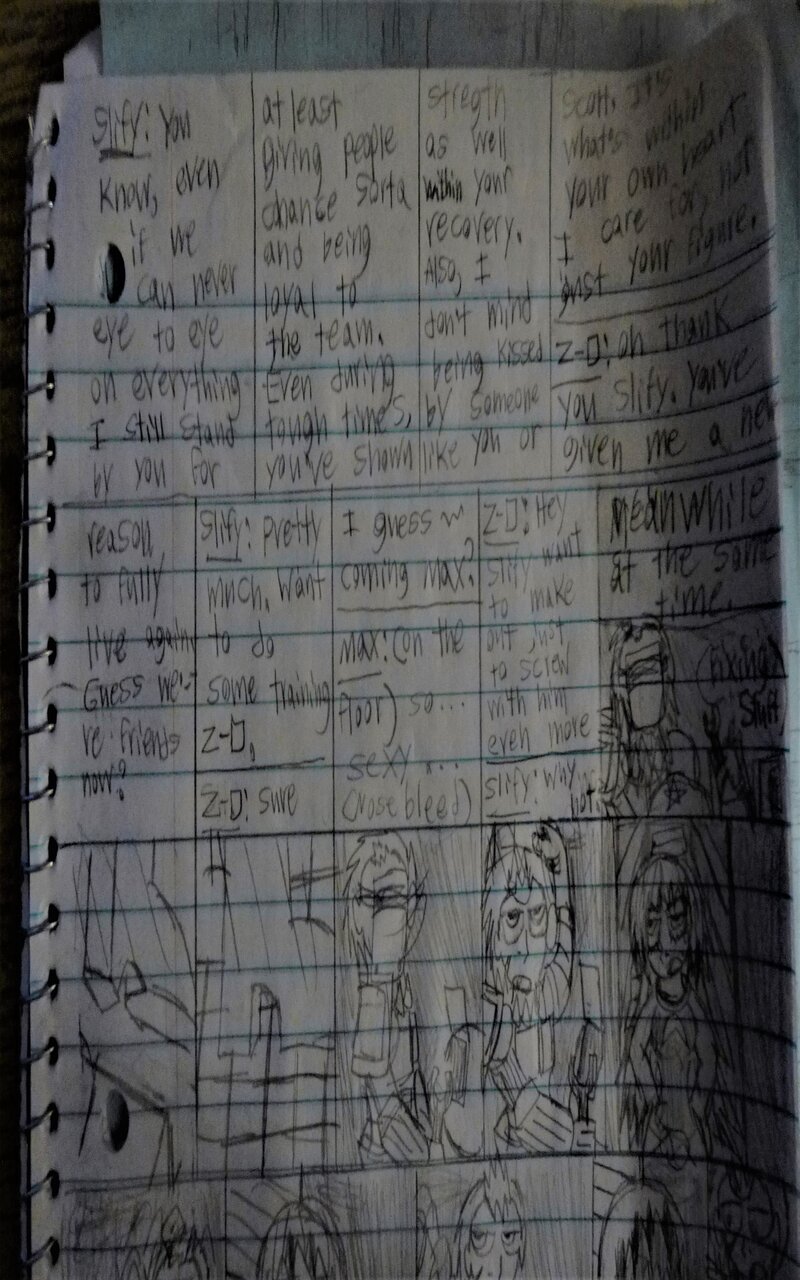 Slify: You
know, even
if we
can never
eye to eye
on everything
I still stand
by you for
at least
giving people
chance sorta
and being
loyal to
the team.
Even during
tough times,
you've shown
stregth
as well
within your
recovery.
Also, I
don't mind
being kissed
by someone
like you or
Scott. It's
what's within
your own heart
I care for, not
just your figure.
Z-D: oh thank
you Slify. You've
given me a new
reason
to fully
live again.
Guess we'-
re friends
now?
Slify: pretty
much. Want
to do
some training
Z-D.
Z-D: sure
I guess
coming Max?
Max: (on the
floor) so...
sexy...
(nose bleed)
Z-D: Hey
Slify want
to make
out just
to screw
with him
even more
Slify: why
not.
Meanwhile
at the same
time.
(fixing)
stuff